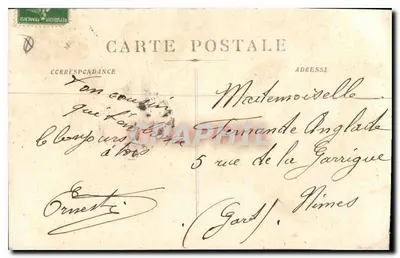 CARTE POSTALE
CORRESPONDANCE
ADRESSE
Ton cousin
qui
toujours
à
Ernest
Mademoiselle
Fernande Anglade
5 rue de la Garrigue
Nîmes
(Gard)